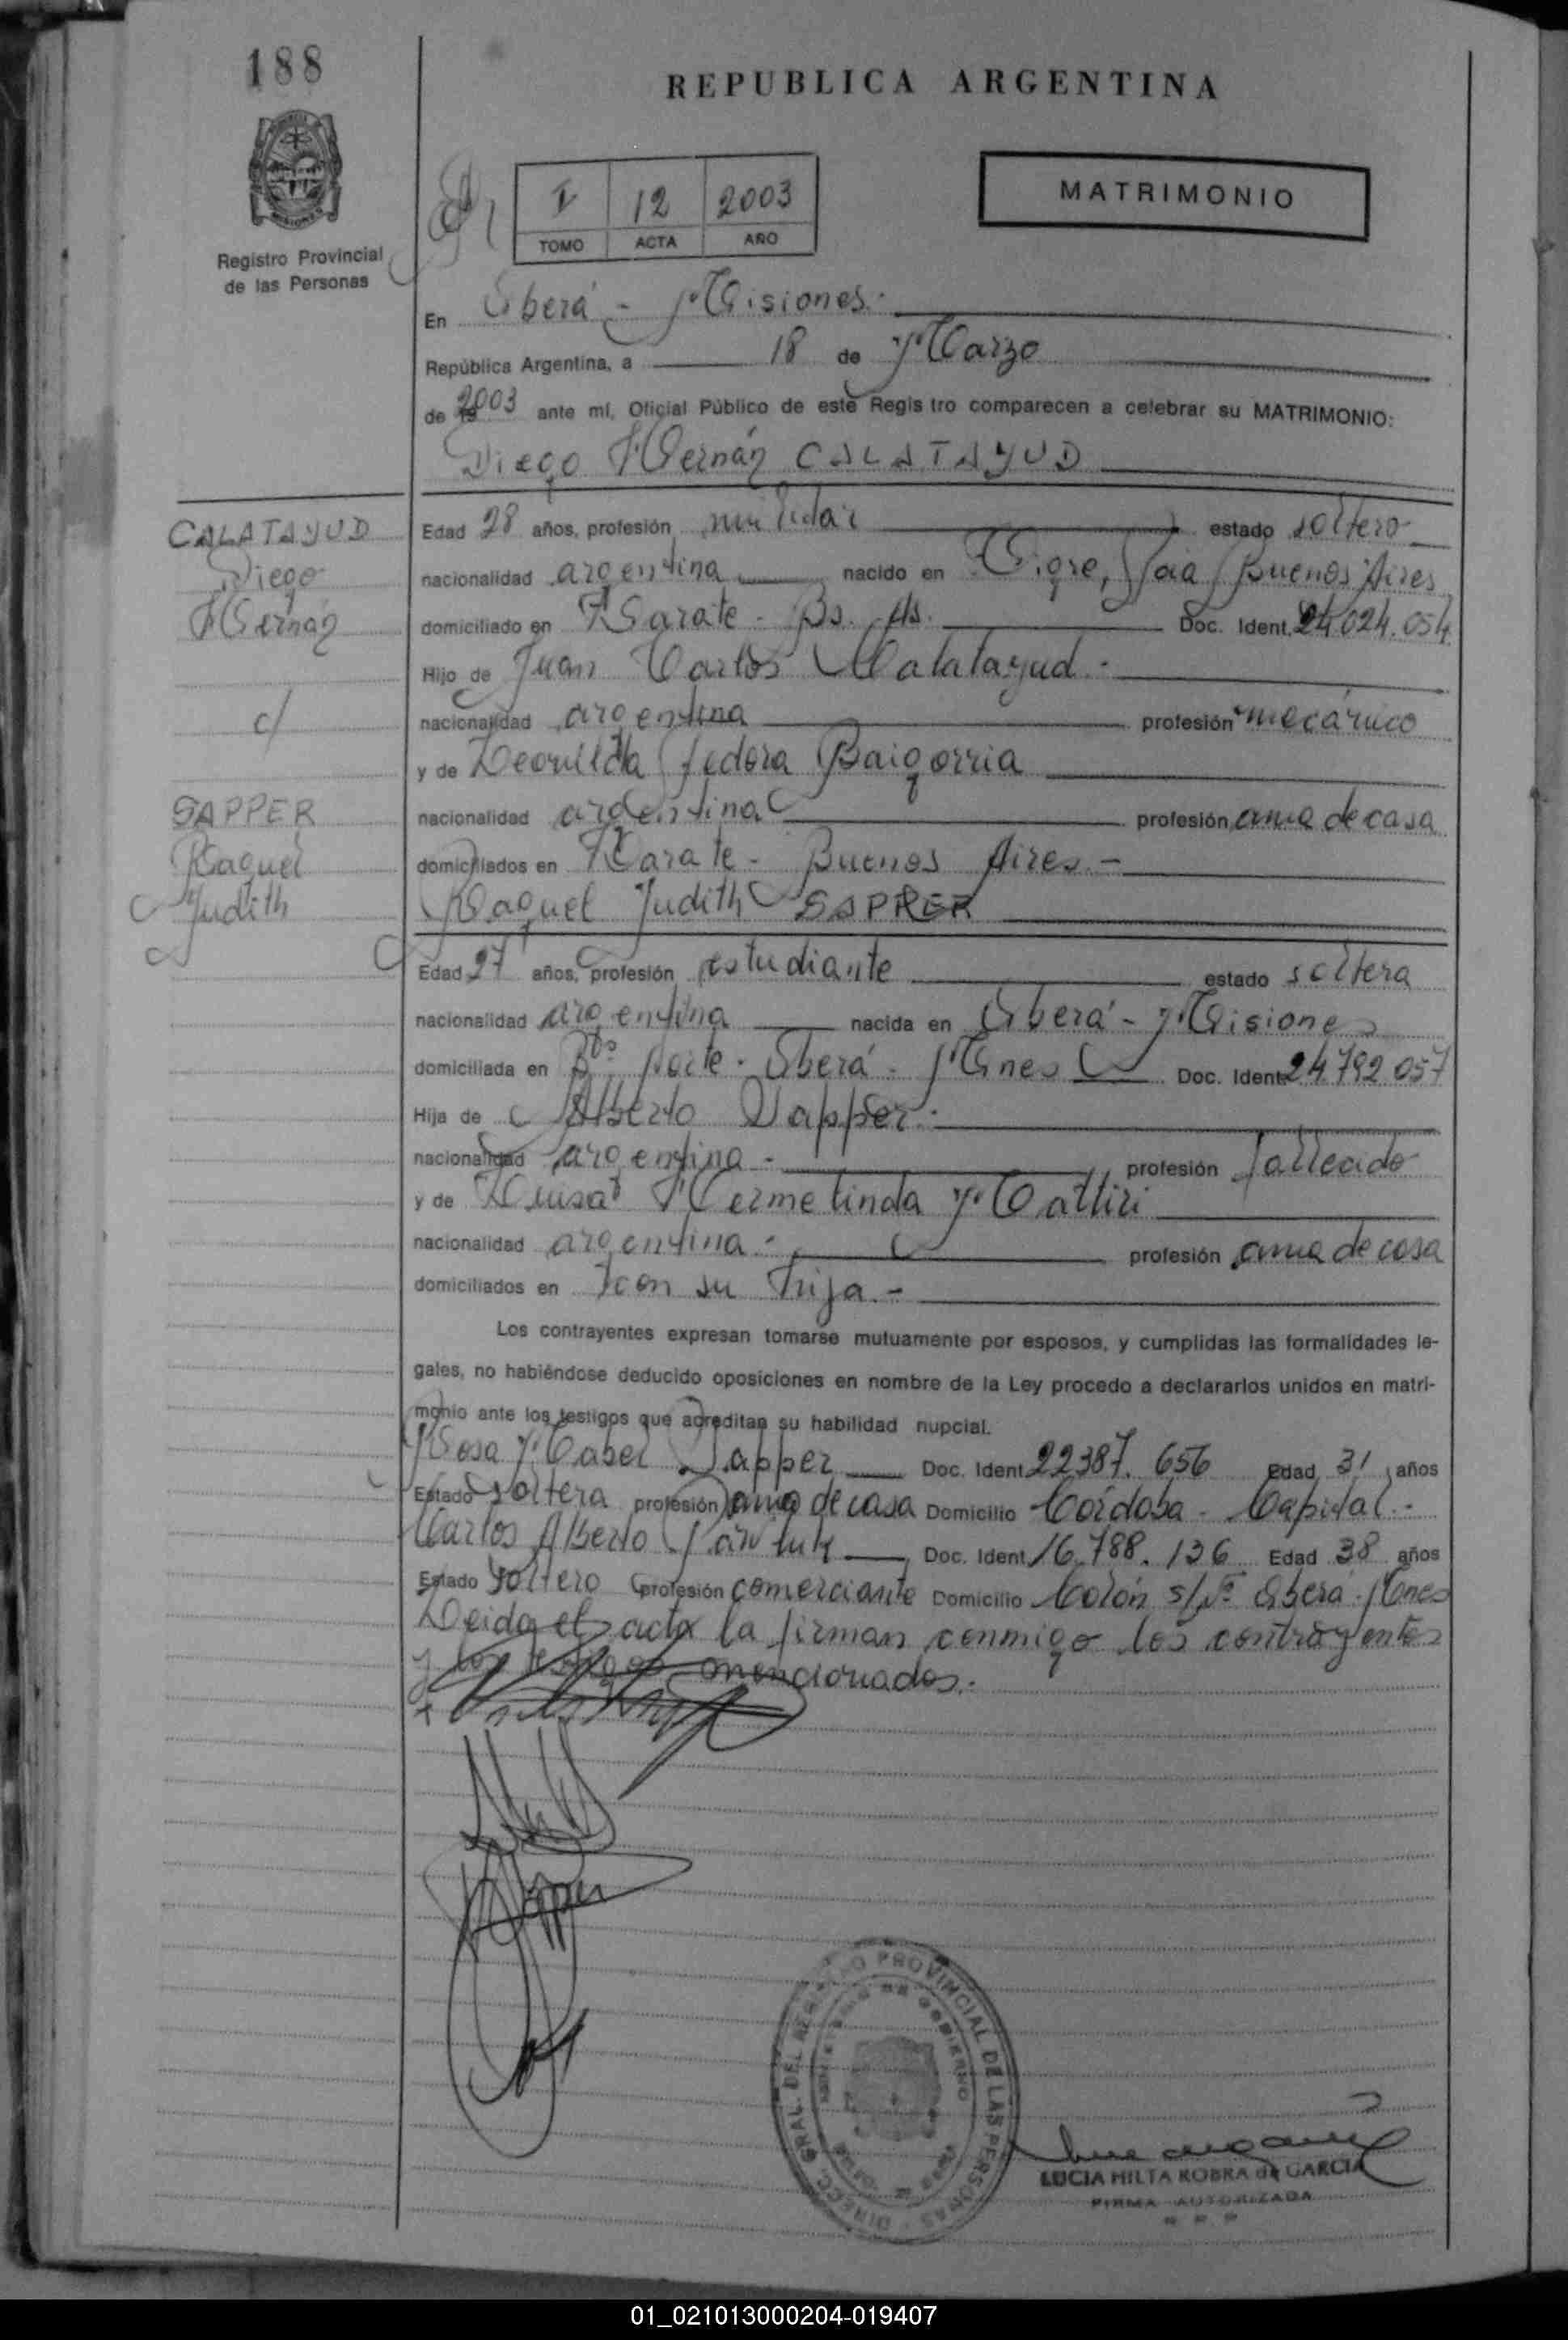 188
REPUBLICA ARGENTINA
I 12 2003
TOMO ACTA AÑO
MATRIMONIO
Registro Provincial
de las Personas
En Oberá - Misiones.-
República Argentina, a 18 de Marzo
de 2003 ante mí, Oficial Público de este Registro comparecen a celebrar su MATRIMONIO:
Diego Hernán CALATAYUD
CALATAYUD
Diego
Hernán
c/
SAPPER
Raquel
Judith
Edad 28 años, profesión militar estado soltero
nacionalidad argentina nacido en Tigre, Pcia Buenos Aires
domiciliado en Zarate - Bs. As. Doc. Ident. 24.024.054
Hijo de Juan Carlos Calatayud.-
nacionalidad argentina profesión mecánico
y de Baigorria
nacionalidad argentina profesión ama de casa
domiciliados en Zarate - Buenos Aires.-
Raquel Judith SAPPER
Edad 27 años, profesión estudiante estado soltera
nacionalidad argentina nacida en Oberá - Misiones
domiciliada en Bº Norte - Oberá - Mnes Doc. Ident. 24.792.057
Hija de Alberto Sapper.-
nacionalidad argentina - profesión fallecido
y de Luisa Hermelinda
nacionalidad argentina.- profesión ama de casa
domiciliados en con su hija.-
Los contrayentes expresan tomarse mutuamente por esposos, y cumplidas las formalidades le-
gales, no habiéndose deducido oposiciones en nombre de la Ley procedo a declararlos unidos en matri-
monio ante los testigos que acreditan su habilidad nupcial.
Rosa Mabel Sapper Doc. Ident. 22387.656 Edad 31 años
Estado soltera profesión ama de casa Domicilio Córdoba - Capital.-
Carlos Alberto Doc. Ident. 16.788.136 Edad 38 años
Estado soltero profesión comerciante Domicilio Colón s/Nº Oberá - Mnes
Leida el acta la firman conmigo los contrayentes
y los testigos mencionados.-
DIRECC. GRAL. DEL REGISTRO PROVINCIAL DE LAS PERSONAS
MINISTERIO DE GOBIERNO
LUCIA HILTA ROBRA de GARCIA
FIRMA AUTORIZADA
R. P. P.
01_021013000204-019407